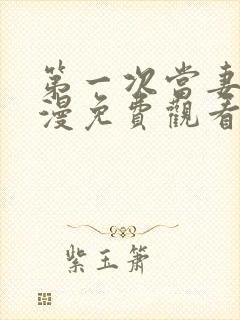 第一次當妻
漫免費觀看
紫玉簫